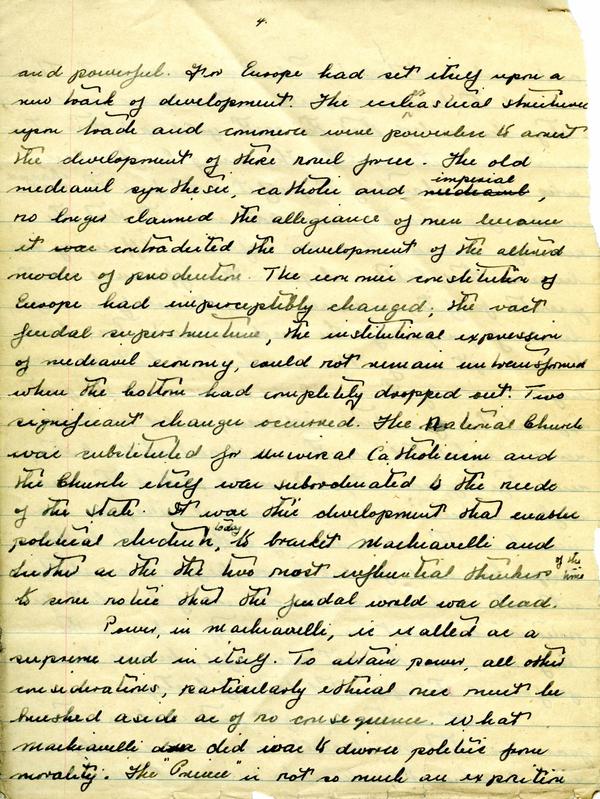 4.
and powerful. For Europe had set itself upon a
new track of development. The ecclesiastical strictures
upon trade and commerce were powerless to arrest
the development of these novel forces. The old
mediaeval synthesis, catholic and mediaeval imperial,
no longer claimed the allegiance of men because
it was contradicted the development of the altered
modes of production. The economic constitution of
Europe had imperceptibly changed; the vast
feudal superstructure, the institutional expression
of mediaeval economy, could not remain untransformed
when the bottom had completely dropped out. Two
significant changes occurred. The National Church
was substituted for universal Catholicism and
the Church itself was subordinated to the needs
of the State. It was this development that enables
political students, today, to bracket Machiavelli and
Luther as the the two most influential thinkers of the time
to serve notice that the feudal world was dead.
Power, in Machiavelli, is exalted as a
supreme end in itself. To attain power, all other
considerations, particularly ethical ones must be
brushed aside as of no consequence. What
Machiavelli did was to divorce politics from
morality. The "Prince" is not so much an exposition